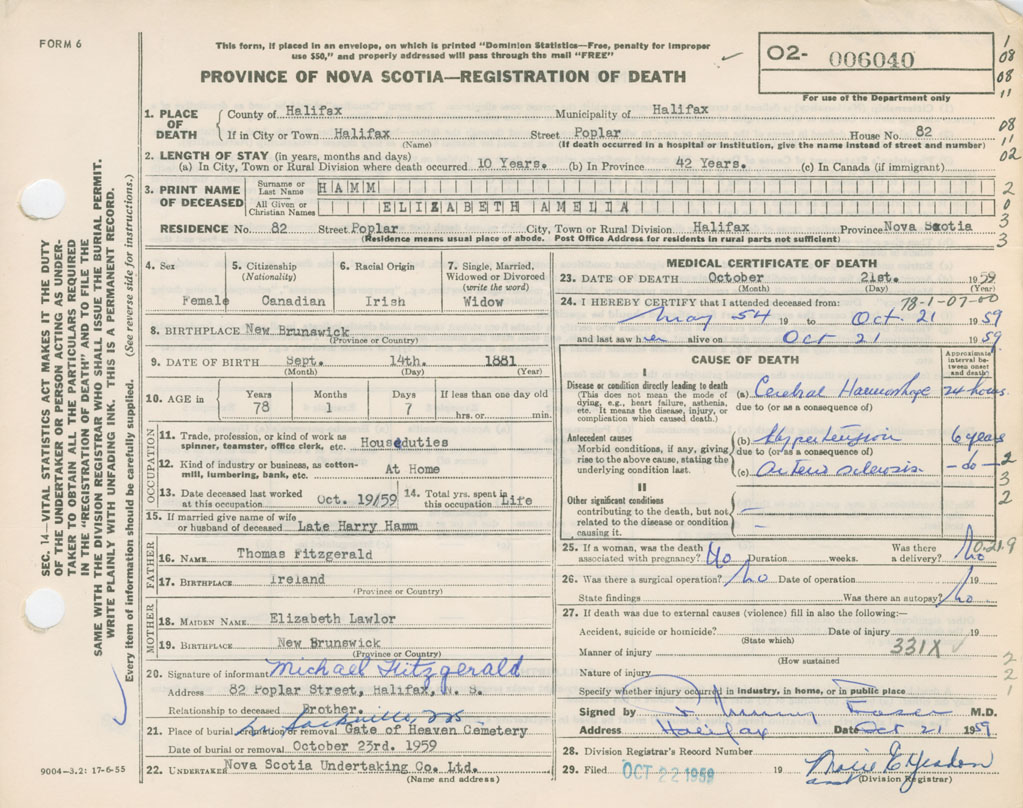 FORM 6
This form, if placed in an envelope, on which is printed "Dominion Statistics—Free, penalty for improper
use $50," and properly addressed will pass through the mail "FREE"
PROVINCE OF NOVA SCOTIA—REGISTRATION OF DEATH
02- 006040
For use of the Department only
1
08
08
11
08
11
02
2
0
3
3
SEC. 14—VITAL STATISTICS ACT MAKES IT THE DUTY
OF THE UNDERTAKER OR PERSON ACTING AS UNDER-
TAKER TO OBTAIN ALL THE PARTICULARS REQUIRED
IN THE "REGISTRATION OF DEATH" AND TO FILE THE
SAME WITH THE DIVISION REGISTRAR WHO SHALL ISSUE THE BURIAL PERMIT.
WRITE PLAINLY WITH UNFADING INK. THIS IS A PERMANENT RECORD.
Every item of information should be carefully supplied. (See reverse side for instructions.)
1. PLACE OF DEATH
County of Halifax Municipality of Halifax
If in City or Town Halifax Street Poplar House No. 82
(Name) (If death occurred in a hospital or institution, give the name instead of street and number)
2. LENGTH OF STAY (in years, months and days)
(a) In City, Town or Rural Division where death occurred 10 Years. (b) In Province 42 Years. (c) In Canada (if immigrant)
3. PRINT NAME OF DECEASED
Surname or Last Name HAMM
All Given or Christian Names ELIZABETH AMELIA
RESIDENCE No. 82 Street Poplar City, Town or Rural Division Halifax Province Nova Scotia
(Residence means usual place of abode. Post Office Address for residents in rural parts not sufficient)
4. Sex 5. Citizenship (Nationality) 6. Racial Origin 7. Single, Married, Widowed or Divorced (write the word)
Female Canadian Irish Widow
8. BIRTHPLACE New Brunswick
(Province or Country)
9. DATE OF BIRTH Sept. 14th. 1881
(Month) (Day) (Year)
10. AGE in Years Months Days If less than one day old
78 1 7 hrs. or min.
OCCUPATION
11. Trade, profession, or kind of work as
spinner, teamster, office clerk, etc. Houseduties
12. Kind of industry or business, as cotton-
mill, lumbering, bank, etc. At Home
13. Date deceased last worked
at this occupation Oct. 19/59
14. Total yrs. spent in
this occupation Life
15. If married give name of wife
or husband of deceased Late Harry Hamm
FATHER
16. NAME Thomas Fitzgerald
17. BIRTHPLACE Ireland
(Province or Country)
MOTHER
18. MAIDEN NAME Elizabeth Lawlor
19. BIRTHPLACE New Brunswick
(Province or Country)
20. Signature of informant Michael Fitzgerald
Address 82 Poplar Street, Halifax, N. S.
Relationship to deceased Brother.
Sackville, NS
21. Place of burial cremation or removal Gate of Heaven Cemetery
Date of burial or removal October 23rd. 1959
22. UNDERTAKER Nova Scotia Undertaking Co. Ltd.
(Name and address)
9004-3.2: 17-6-55
MEDICAL CERTIFICATE OF DEATH
23. DATE OF DEATH October 21st. 1959
(Month) (Day) (Year)
24. I HEREBY CERTIFY that I attended deceased from: 78-1-07-00
May 54 19 to Oct. 21 1959
and last saw her alive on Oct 21 1959
CAUSE OF DEATH
Approximate
interval be-
tween onset
and death
I
Disease or condition directly leading to death
(This does not mean the mode of
dying, e.g., heart failure, asthenia,
etc. It means the disease, injury, or
complication which caused death.)
(a) Cerebral Haemorrhage 24 hours
due to (or as a consequence of)
Antecedent causes
Morbid conditions, if any, giving
rise to the above cause, stating the
underlying condition last.
(b) Hypertension 6 years
due to (or as a consequence of)
(c) Arterio sclerosis -do-
2
3
2
II
Other significant conditions
contributing to the death, but not
related to the disease or condition
causing it.
25. If a woman, was the death
associated with pregnancy? No Duration weeks. Was there
a delivery? No
0-21-9
26. Was there a surgical operation? No Date of operation 19
State findings Was there an autopsy? No
27. If death was due to external causes (violence) fill in also the following:—
Accident, suicide or homicide? Date of injury 19
(State which)
Manner of injury 331X
(How sustained
Nature of injury
2
2
1
Specify whether injury occurred in industry, in home, or in public place
Signed by Murray Fraser M.D.
Address Halifax Date Oct 21 1959
28. Division Registrar's Record Number
29. Filed OCT 22 1959 19
(Division Registrar)